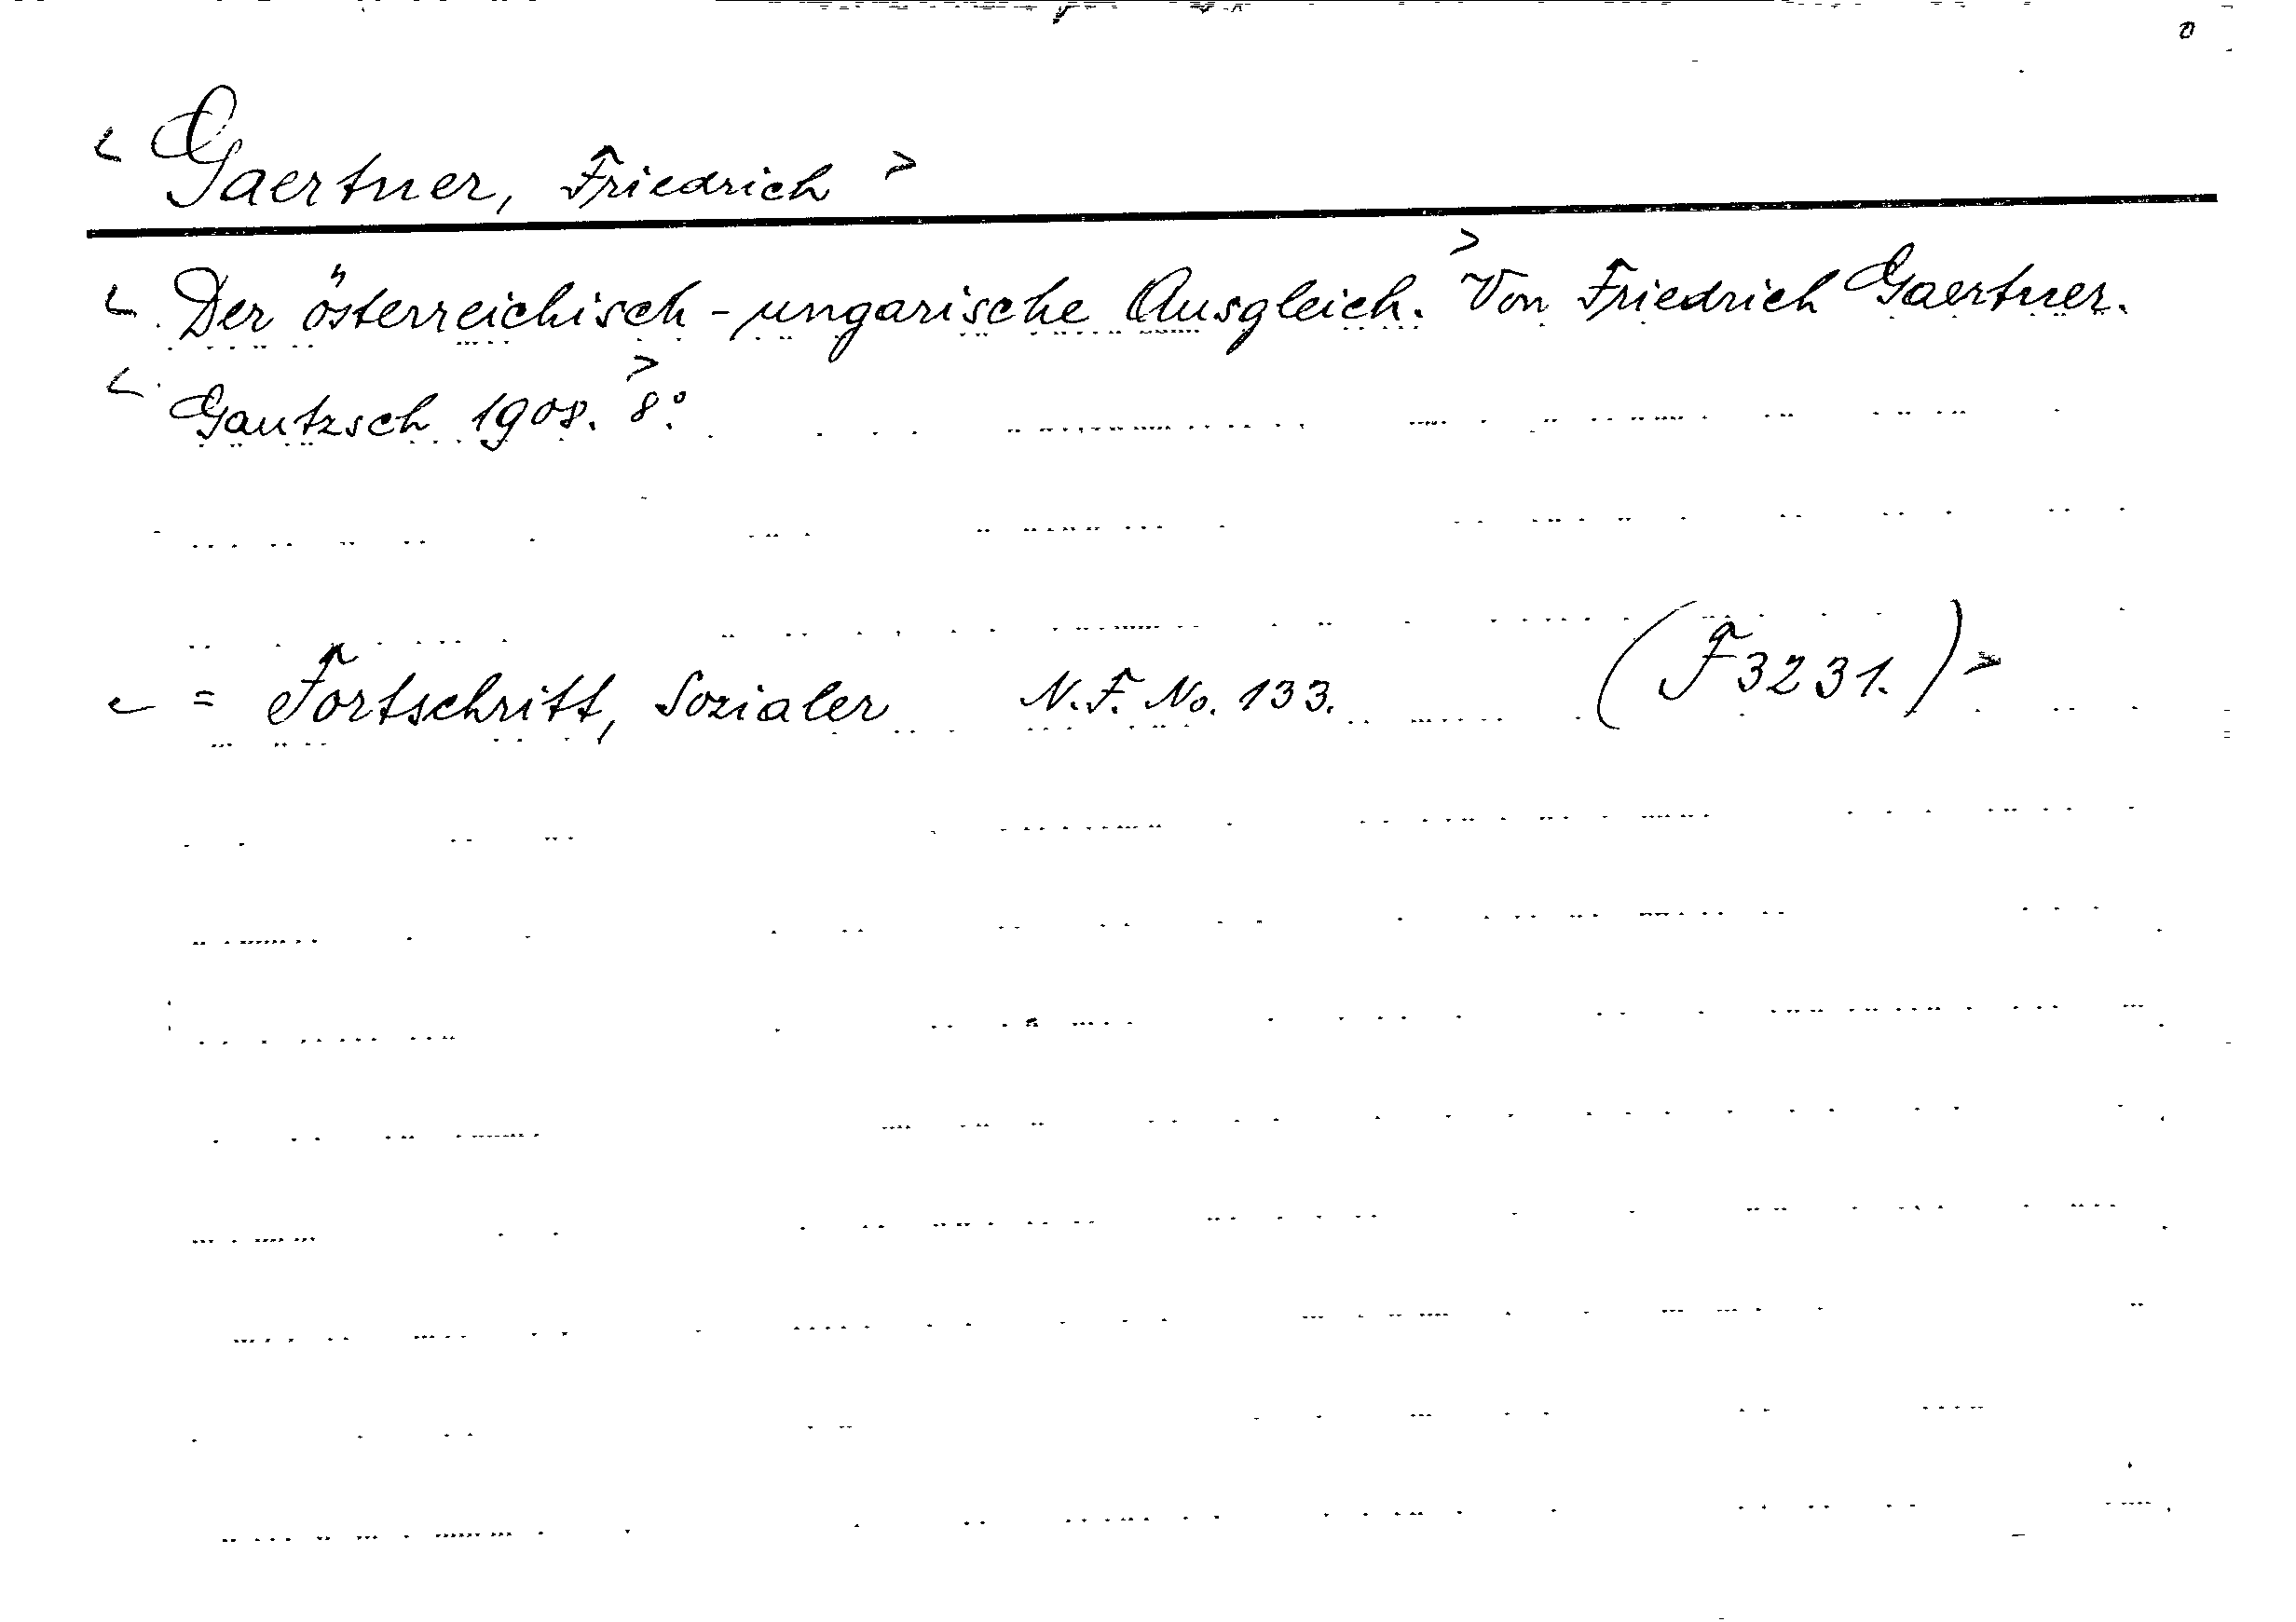 < Gaertner, Friedrich >
< Der österreichisch-ungarische Ausgleich. > Von Friedrich Gaertner.
< Gautzsch 1908. > 8°.
< = Fortschritt, Sozialer N.F. No. 133. (F 3231.) >